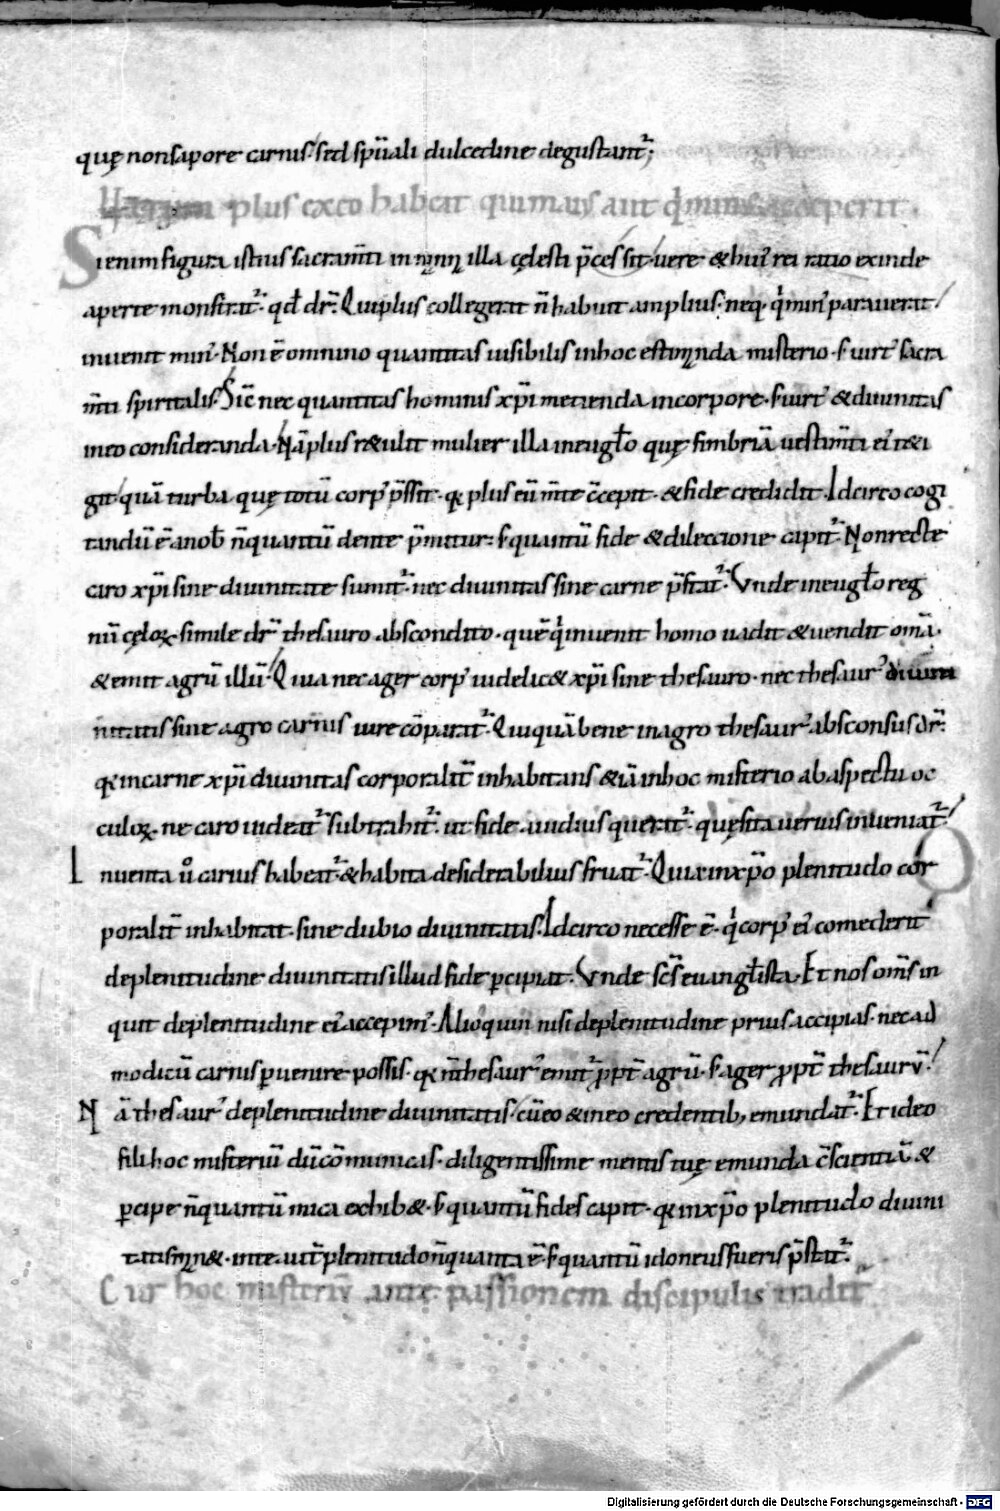 quę non sapore carnis sed spūali dulcedine degustant᷑;
plus ex eo habeat qui maius aut qͥ minus
Si enim figura istius sacram̄ti in manna illa cęlesti p̄cessit uere & hui᷑ rei ratio exinde
aperte monstrat᷑. qđ dr̄. Qui plus collegerat n̄ habuit amplius. neq. qͥ min᷑ parauerat
inuenit min᷑. Non ē omnino quantitas uisibilis in hoc estimanda misterio. s; uirt᷑ sacra
m̄ti spiritalis. Sic̄ nec quantitas hominis xp̄i metienda in corpore. s; uirt᷑ & diuinitas
in eo consideranda. Nā plus r&ulit mulier illa in eugl̄o quę fimbriā uestim̄ti ei᷑ t&i
git quā turba quę totū corp᷑ p̄ssit. qꝛ plus eū m̄te c̄cepit. & fide credidit. Idcirco cogi
tandū ē a nob̄ n̄ quantū dente p̄mitur. s; quantū fide & dileccione capit᷑. Non recte
caro xp̄i sine diuinitate sumit᷑. nec diuinitas sine carne p̄stat᷑. Vnde in eugl̄o reg
nū cęloꝝ. simile dr̄ thesauro abscondito. quē qͥ inuenit homo uadit & uendit om̄a.
& emit agrū illū. Quia nec ager corp᷑ uidelic& xp̄i sine thesauro. nec thesaur᷑ diuin
nitatis sine agro carnis iure cōparat᷑. Quiquā bene in agro thesaur᷑ absconsus dr̄.
qꝛ in carne xp̄i diuinitas corporalit̄ inhabitans & iā in hoc misterio ab aspectu oc
culoꝝ. ne caro uideat᷑ subtrahit᷑. ut fide auidius querat᷑. quęsita uerius inueniat᷑
Inuenta ů carius habeat᷑. & habita desiderabilius fruat᷑. Quia in xp̄o plenitudo cor
poralit̄ inhabitat. sine dubio diuinitatis. Idcirco necesse ē. qͥ corp᷑ ei᷑ comederit
de plenitudine diuinitatis illud fide ꝑcipiat. Vnde sc̄s euangl̄ista. Et nos om̄s in
quit de plenitudine ei᷑ accepim᷑. Alioquin nisi de plenitudine prius accipias. nec ad
modicū carnis ꝑuenire possis. qꝛ n̄ thesaur᷑ emit᷑ ꝓpt̄ agrū. s; ager ꝓpt̄ thesaurū.
Nā thesaur᷑ de plenitudine diuinitatis. cū eo & in eo credentib; emundat᷑. Et ideo
fili hoc misteriū dū cōmunicas. diligentissime mentis tuę emunda c̄scientiā &
ꝑcipe n̄ quantū mica exhib&. s; quantū fides capit. qꝛ in xp̄o plenitudo diuini
tatis man&. in te. uit̄ plenitudo n̄ quanta ē. s; quantū idoneus fueris p̄stat᷑.
Cur hoc misteriū ante passionem discipulis tradit